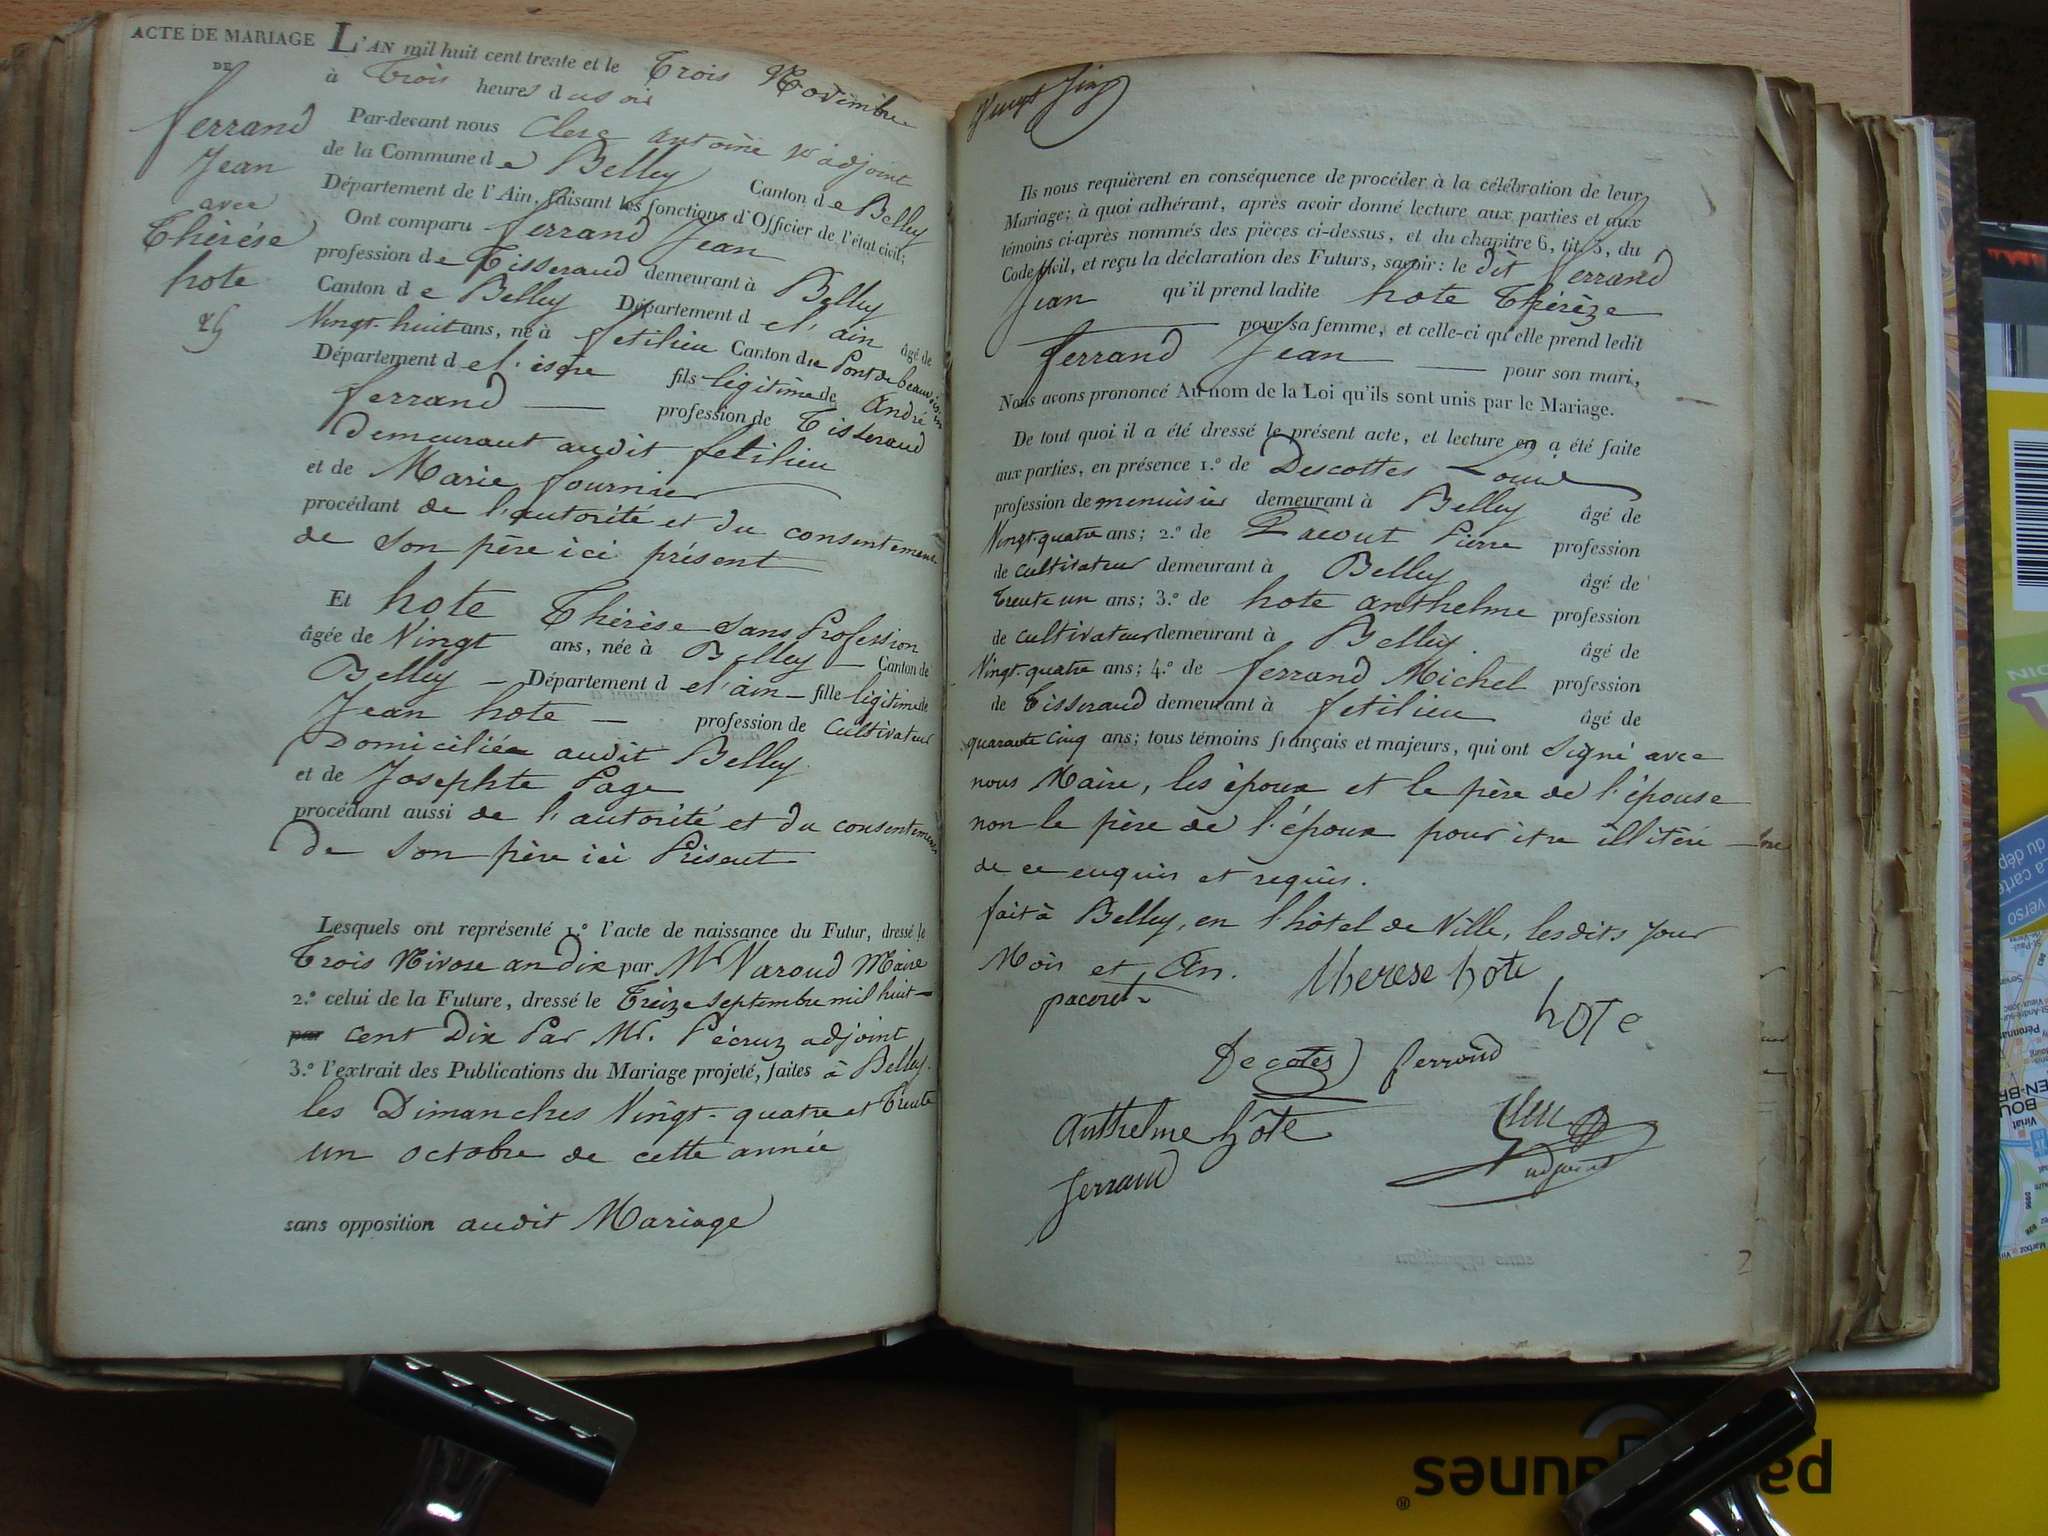 ACTE DE MARIAGE
DE
ferrand
Jean
avec
Thérèse
hote
25
L'AN mil huit cent trente et le Trois Novembre
à Trois heures du soir
Par-devant nous Clerc antoine 1er adjoint
de la Commune de Belley Canton de Belley
Département de l'Ain, faisant les fonctions d'Officier de l'état civil;
Ont comparu ferrand Jean
profession de Tisserand demeurant à Belley
Canton de Belley Département del'ain âgé de
Vingt-huit ans, né à fetilieu Canton du Pont de beauvoisin
Département del'isere fils légitime de André
ferrand profession de Tisserand
Demeurant audit fetilieu
et de Marie fournier
procédant de l'autorité et du consentement
de son père ici présent
Et hote Thérèse sans Profession
âgée de Vingt ans, née à Belley Canton de
Belley Département del'ain fille légitime de
Jean hote profession de Cultivateur
Domiciliée audit Belley
et de Josephte Page
procédant aussi de l'autorité et du consentement
De son père ici Présent
Lesquels ont représenté 1.º l'acte de naissance du Futur, dressé le
Trois Nivose an dix par Mr Varoud Maire
2.º celui de la Future, dressé le Treize septembre mil huit-
par cent Dix Par Mr. Pécruz adjoint
3.º l'extrait des Publications du Mariage projeté, faites à Belley
les Dimanches Vingt-quatre et Trente
un octobre de cette année
sans opposition audit Mariage
Vingt Cinq
Ils nous requièrent en conséquence de procéder à la célébration de leur
Mariage; à quoi adhérant, après avoir donné lecture aux parties et aux
témoins ci-après nommés des pièces ci-dessus, et du chapitre 6, tit. 5, du
Code civil, et reçu la déclaration des Futurs, savoir: le dit ferrand
Jean qu'il prend ladite hote Thérèze
pour sa femme, et celle-ci qu'elle prend ledit
ferrand Jean pour son mari,
Nous avons prononcé Au nom de la Loi qu'ils sont unis par le Mariage.
De tout quoi il a été dressé le présent acte, et lecture en a été faite
aux parties, en présence 1.º de Descottes Louis
profession de menuisier demeurant à Belley âgé de
Vingt-quatre ans; 2.º de Pacout Pierre profession
de cultivateur demeurant à Belley âgé de
Trente un ans; 3.º de hote anthelme profession
de cultivateur demeurant à Belley. âgé de
Vingt-quatre ans; 4.º de ferrand Michel profession
de Tisserand demeurant à fetilieu âgé de
quarante cinq ans; tous témoins français et majeurs, qui ont signé avec
nous Maire, les époux et le père de l'épouse
non le père de l'époux pour itre illitéré
de ce enquis et requis.
fait à Belley, en l'hôtel de Ville, lesdits jour
Mois et An.
pacout
therese hote
hote
Decotes ferrand
Anthelme hote
Clerc
adjoint
ferrand
pa aunes
®
verso
La carte
du dép